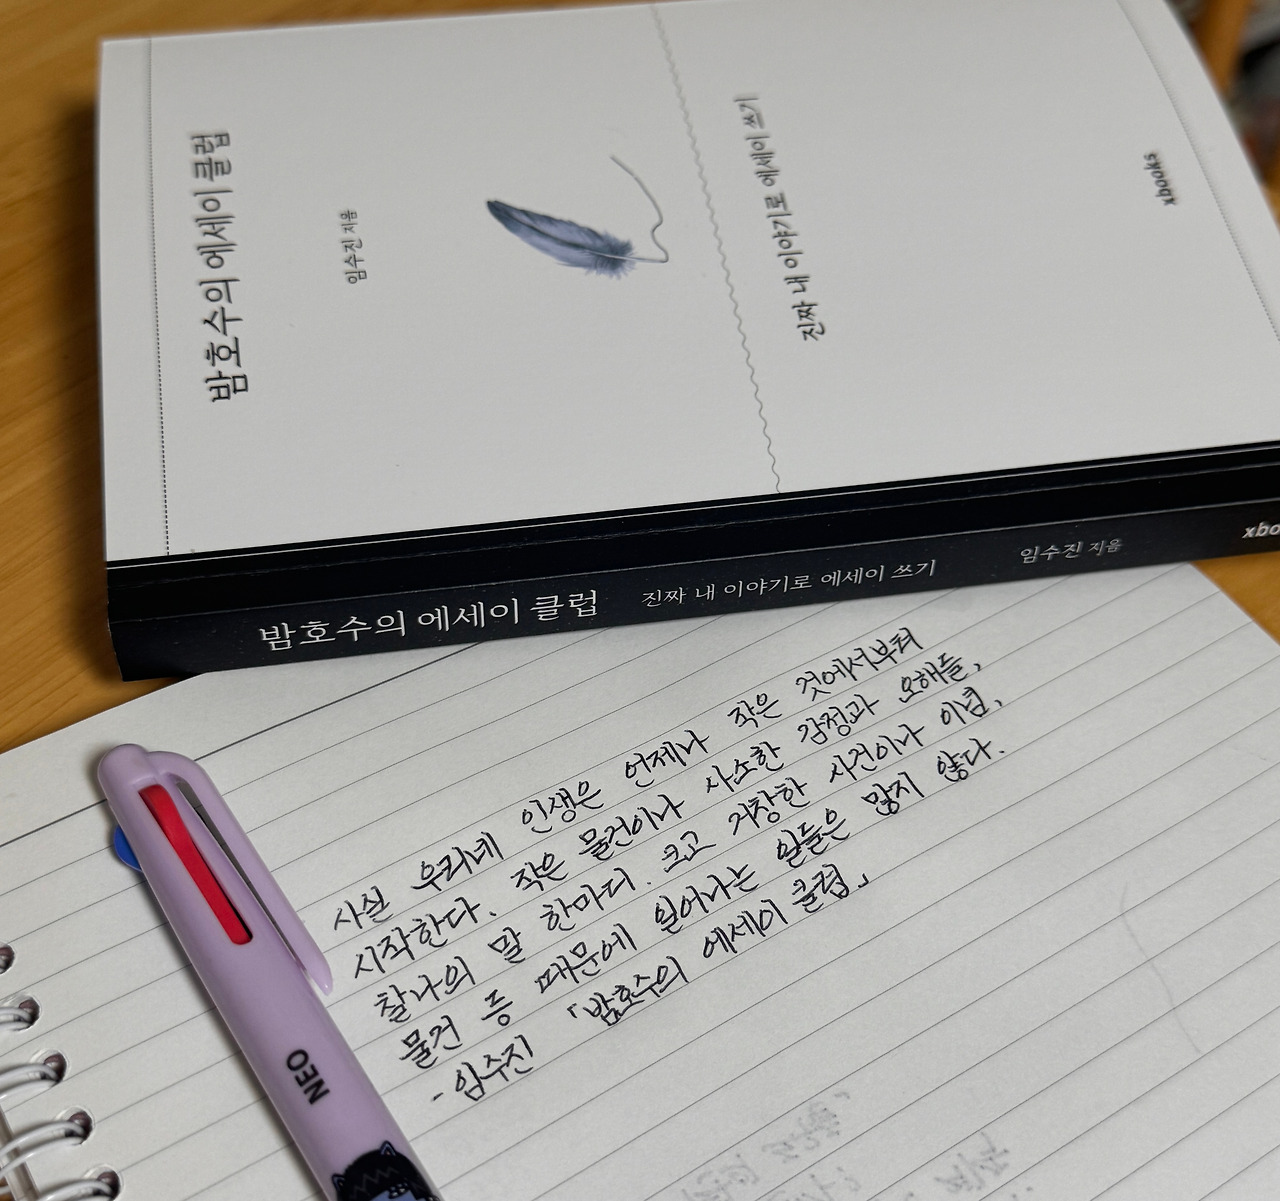 밤호수의 에세이 클럽
임수진 지음
진짜 내 이야기로 에세이 쓰기
xbooks
밤호수의 에세이 클럽 진짜 내 이야기로 에세이 쓰기 임수진 지음 xbo
사실 우리네 인생은 언제나 작은 것에서부터
시작한다. 작은 물건이나 사소한 감정과 오해들,
찰나의 말 한마디. 크고 거창한 사건이나 이념,
물건 등 때문에 일어나는 일들은 많지 않다.
- 임수진 「밤호수의 에세이 클럽」
NEO